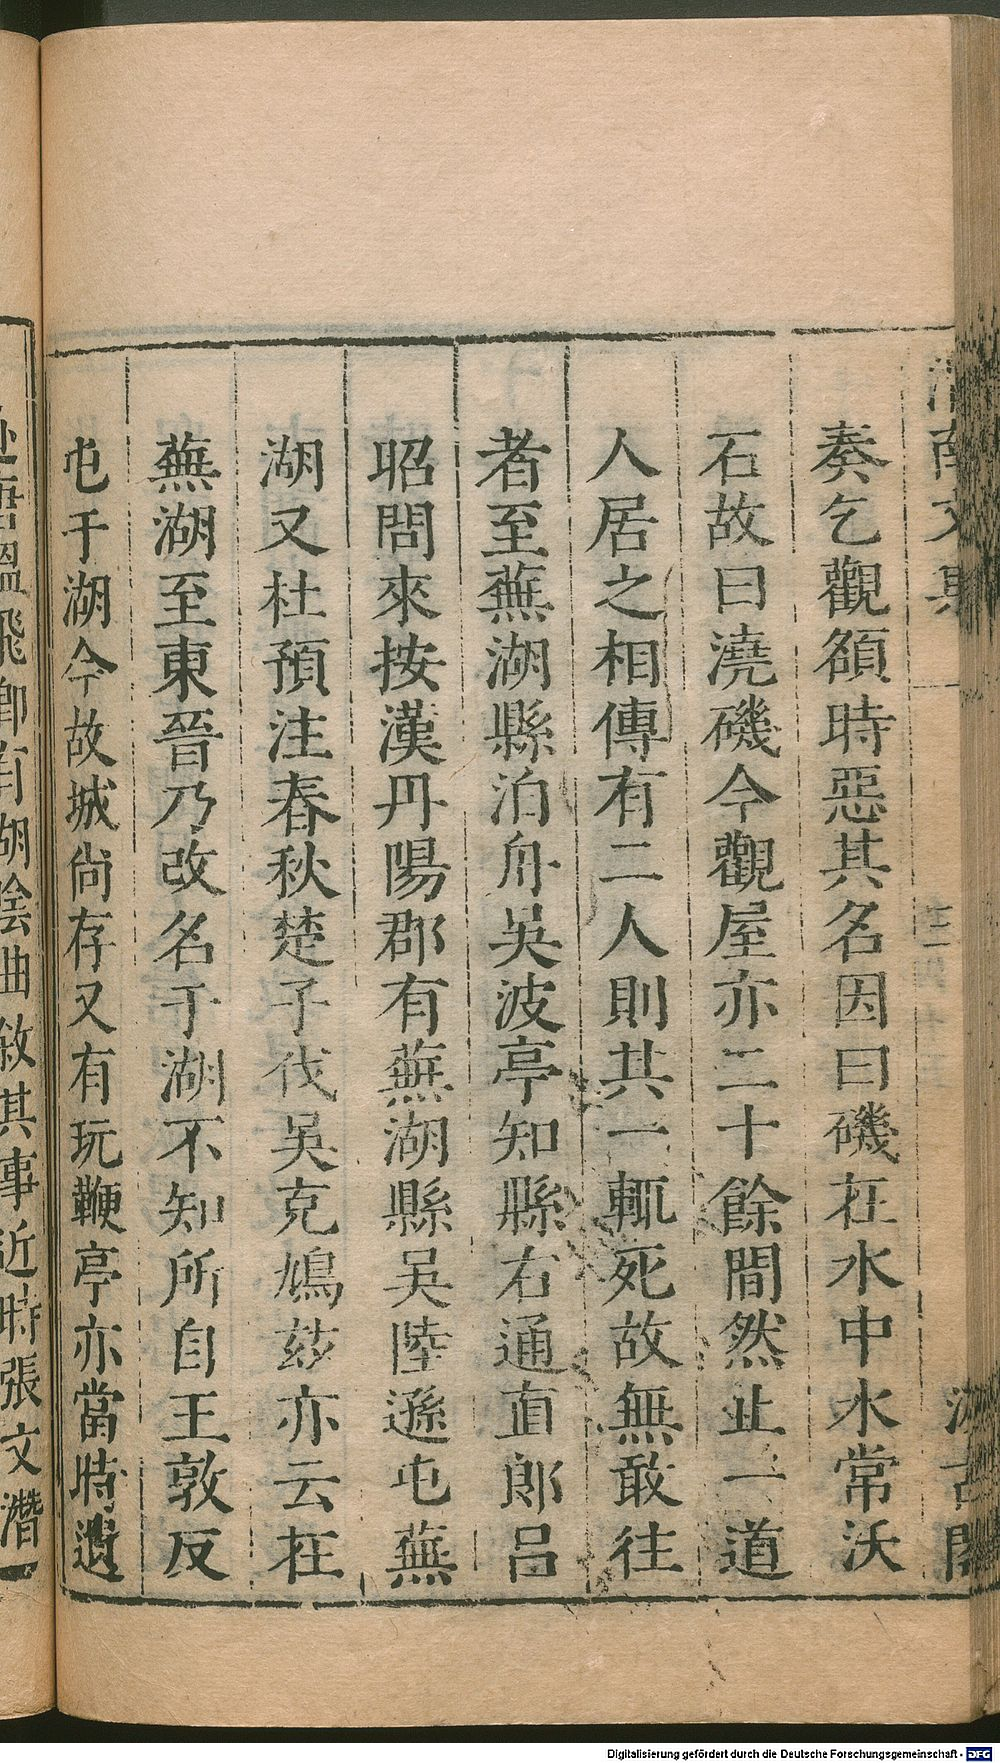 奏乞觀額時惡其名因曰磯在水中水常沃
石故曰澆磯今觀屋亦二十餘間然止一道
人居之相傳有二人則其一輒死故無敢往
者至蕪湖縣泊舟吳波亭知縣右通直郎呂
昭問來按漢丹陽郡有蕪湖縣吳陸遜屯蕪
湖又杜預注春秋楚子伐吳克鳩茲亦云在
蕪湖至東晉乃改名于湖不知所自王敦反
屯于湖今故城尙存又有玩鞭亭亦當時遺
趾唐溫飛卿有湖陰曲敘其事近時張文潛
Digitalisierung gefördert durch die Deutsche Forschungsgemeinschaft - DFG